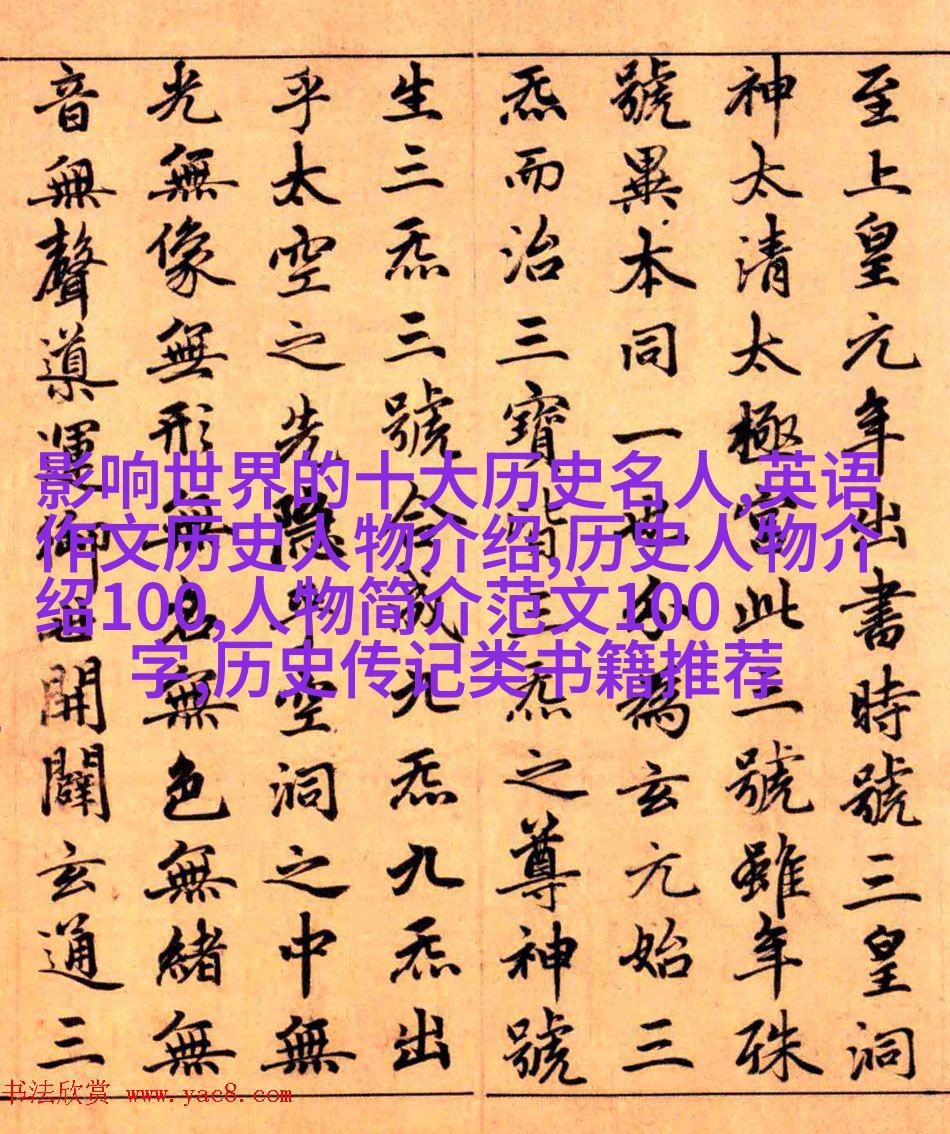 至上皇元年出書時號三皇洞
神太清太極宮此三號雖年殊
號異本同一也分為玄元始三
炁而治三寶皆三炁之尊神號
生三炁三號合成九炁九炁出
乎太空之先隱乎空洞之中無
光無像無形無名無色無緒無
音無聲導運御世開闢玄通三
影响世界的十大历史名人,英语
作文历史人物介绍,历史人物介
绍100,人物简介范文100
字,历史传记类书籍推荐
书法欣赏 www.yac8.com